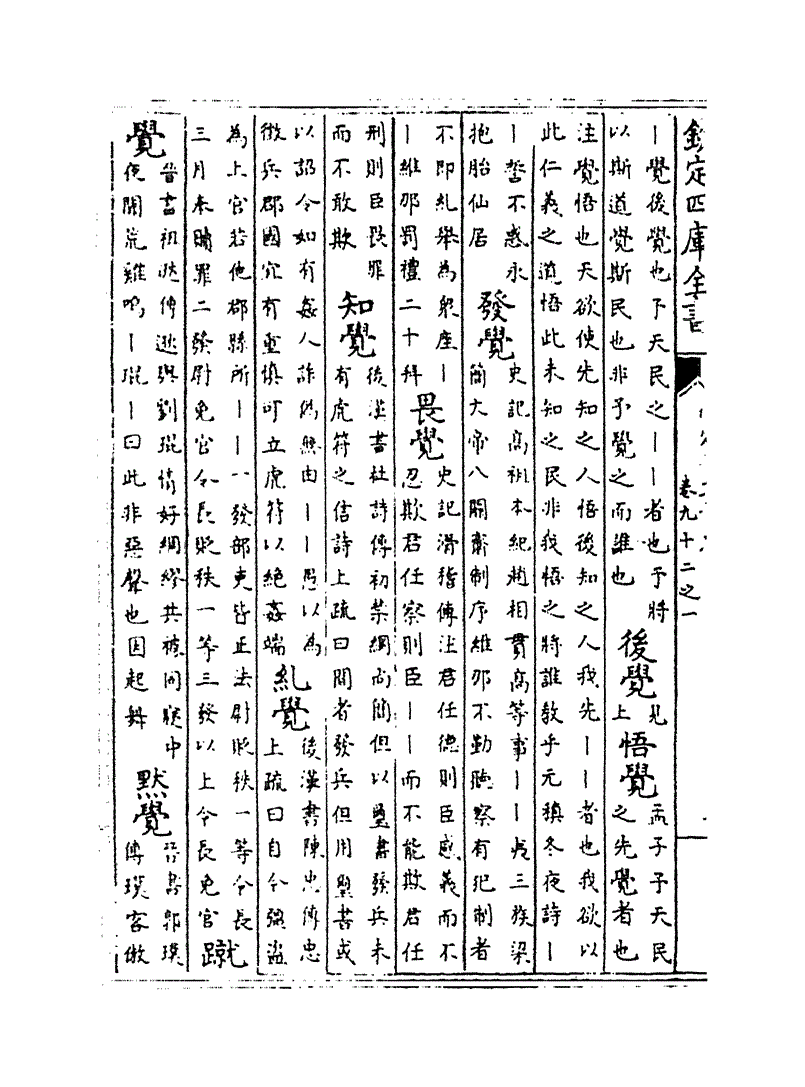 欽定四庫全書
卷九十二之一
丨覺後覺也下天民之丨丨者也予將
以斯道覺斯民也非予覺之而誰也
後覺
見
上
悟覺
孟子予天民
之先覺者也
注覺悟也天欲使先知之人悟後知之人我先丨丨者也我欲以
此仁義之道悟此未知之民非我悟之將誰教乎元稹冬夜詩丨
丨誓不惑永
抱胎仙居
發覺
史記高祖本紀趙相貫高等事丨丨夷三族梁
簡大帝八關齋制序維那不勤聽察有犯制者
不即糺舉為眾座丨
丨維那罰禮二十拜
畏覺
史記滑稽傳注君任德則臣感義而不
忍欺君任察則臣丨丨而不能欺君任
刑則臣畏罪
而不敢欺
知覺
後漢書杜詩傳初禁網尚簡但以璽書發兵未
有虎符之信詩上疏曰間者發兵但用璽書或
以詔令如有姦人詐偽無由丨丨愚以為
徵兵郡國宜有重慎可立虎符以絕姦端
糺覺
後漢書陳忠傳忠
上疏曰自今強盜
為上官若他郡縣所丨丨一發部吏皆正法尉貶秩一等令長
三月本贖罪二發尉免官令長貶秩一等三發以上令長免官
蹴
覺
晉書祖逖傳逖與劉琨情好綢繆共被同寢中
夜聞荒雞鳴丨琨丨曰此非惡聲也因起舞
默覺
晉書郭璞
傳璞客傲